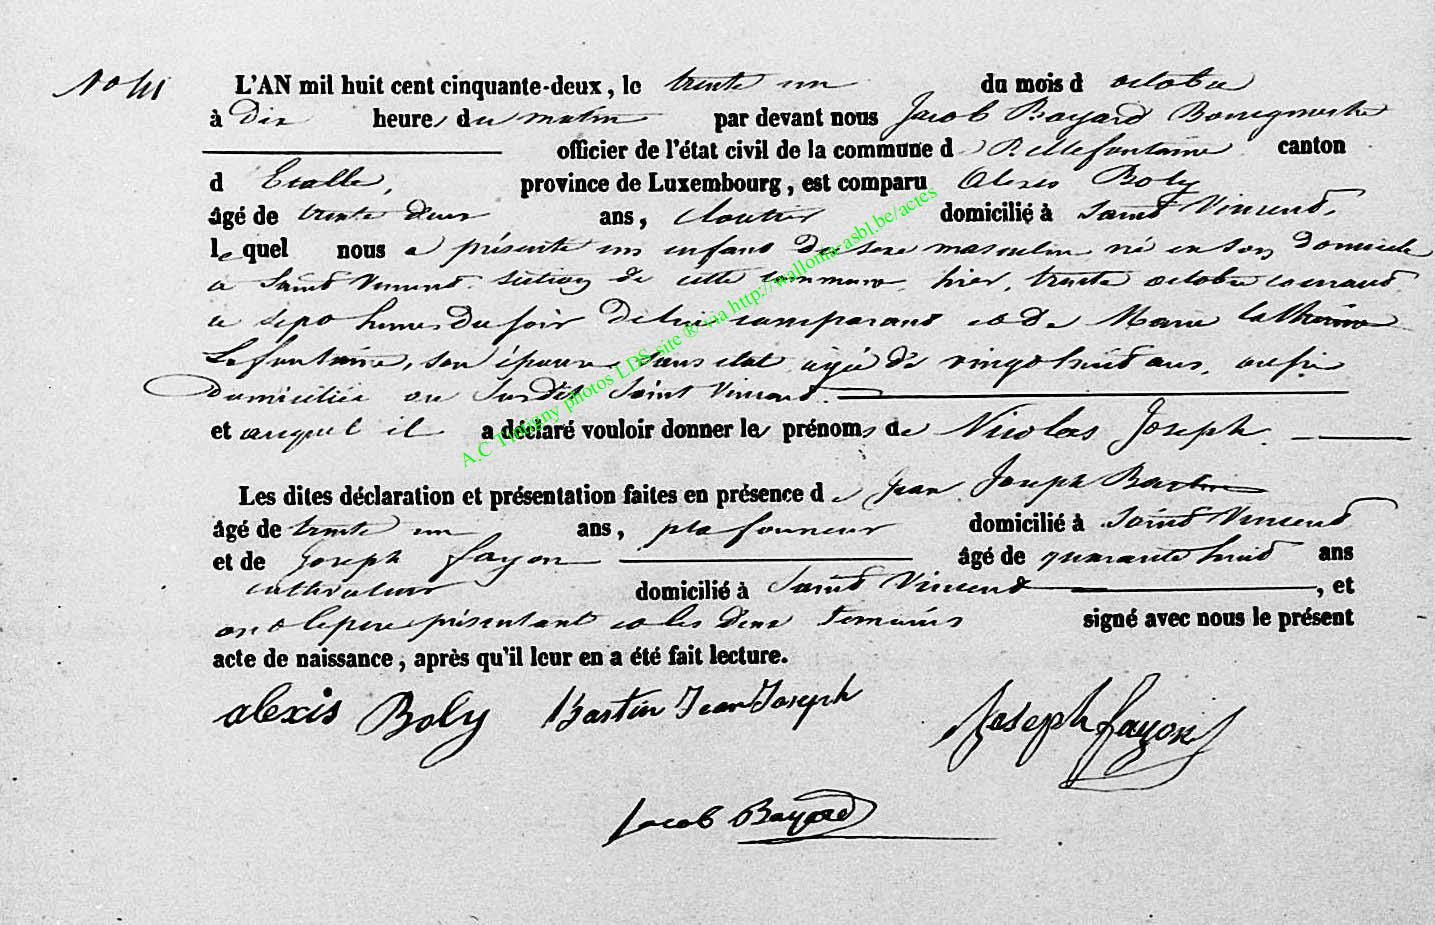 No 41
L'AN mil huit cent cinquante-deux, le trente un du mois d octobre
à dix heures du matin par devant nous Jacob Bayard Bourgmestre
officier de l'état civil de la commune de Bellefontaine canton
d Etalle, province de Luxembourg, est comparu Alexis Boly
âgé de trente deux ans, cloutier domicilié à Saint Vincent,
lequel nous a présenté un enfant du sexe masculin né en son domicile
a Saint Vincent section de cette commune, hier, trente octobre courant
a sept heures du soir de lui comparant et de Marie Catherine
Lafontaine, son épouse sans état âgée de vingt huit ans, aussi
domiciliée au Susdit Saint Vincent.
et auquel il a déclaré vouloir donner les prénoms de Nicolas Joseph.
Les dites déclaration et présentation faites en présence de Jean Joseph Bastin
âgé de trente un ans, plafonneur domicilié à Saint Vincent
et de Joseph fayon âgé de quarante huit ans
cultivateur domicilié à Saint Vincent, et
ont le père présentant et les deux temoins signé avec nous le présent
acte de naissance, après qu'il leur en a été fait lecture.
alexis Boly Bastin Jean Joseph Joseph fayon
Jacob Bayard
A.C Tintigny photos LDS site ® via http://wallonia.asbl.be/actes